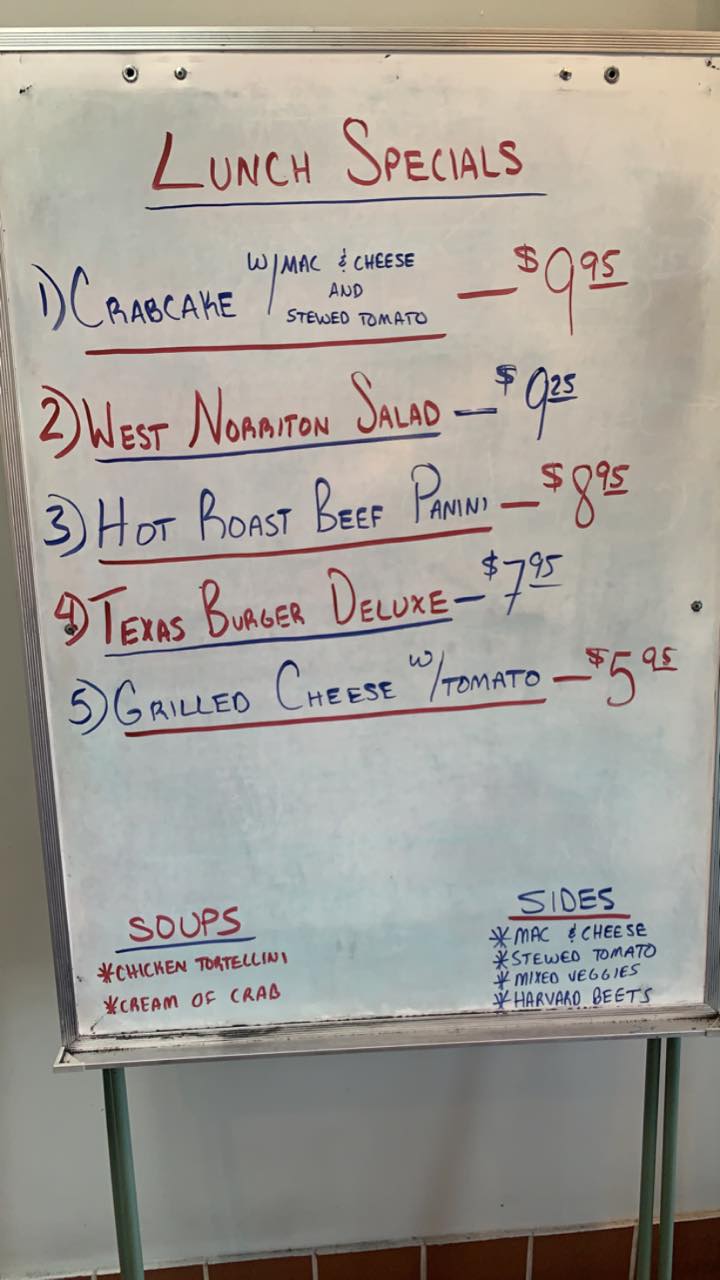 LUNCH SPECIALS
1) CRABCAKE W/MAC & CHEESE
AND
STEWED TOMATO — $9.95
2) WEST NORRITON SALAD — $9.25
3) HOT ROAST BEEF PANINI — $8.95
4) TEXAS BURGER DELUXE — $7.95
5) GRILLED CHEESE W/TOMATO — $5.95
SOUPS
*CHICKEN TORTELLINI
*CREAM OF CRAB
SIDES
*MAC & CHEESE
*STEWED TOMATO
*MIXED VEGGIES
*HARVARD BEETS